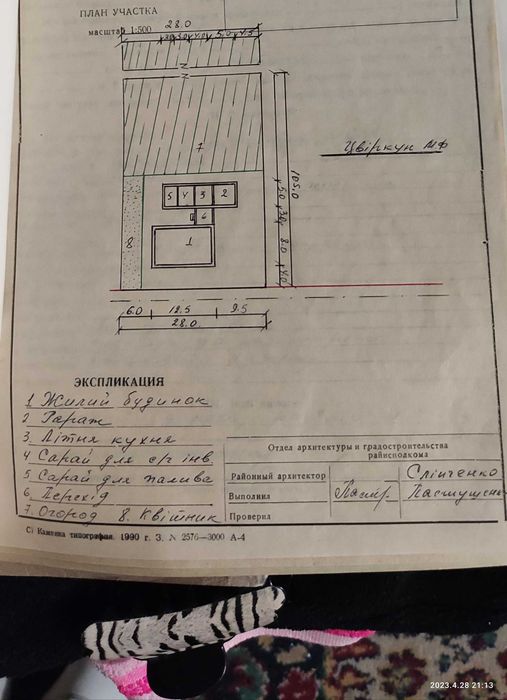 ПЛАН УЧАСТКА
масштаб 1:500
28.0
4.0 5.0 4.5
7
Цвіркун МФ
105.0
5 4 3 2
6
5.0 3.0 8.0 4.0
1
8
6.0 12.5 9.5
28.0
ЭКСПЛИКАЦИЯ
1 Жилий будинок
2 Гараж
3. Літня кухня
4 Сарай для с/г інв
5 Сарай для палива
6. Перехід
7. Огород 8. Квітник
Отдел архитектуры и градостроительства
райисполкома
Районный архитектор Слінченко
Выполнил
Проверил
С) Каменка типография. 1990 г. З. N 2576—3000 А-4
2023.4.28 21:13